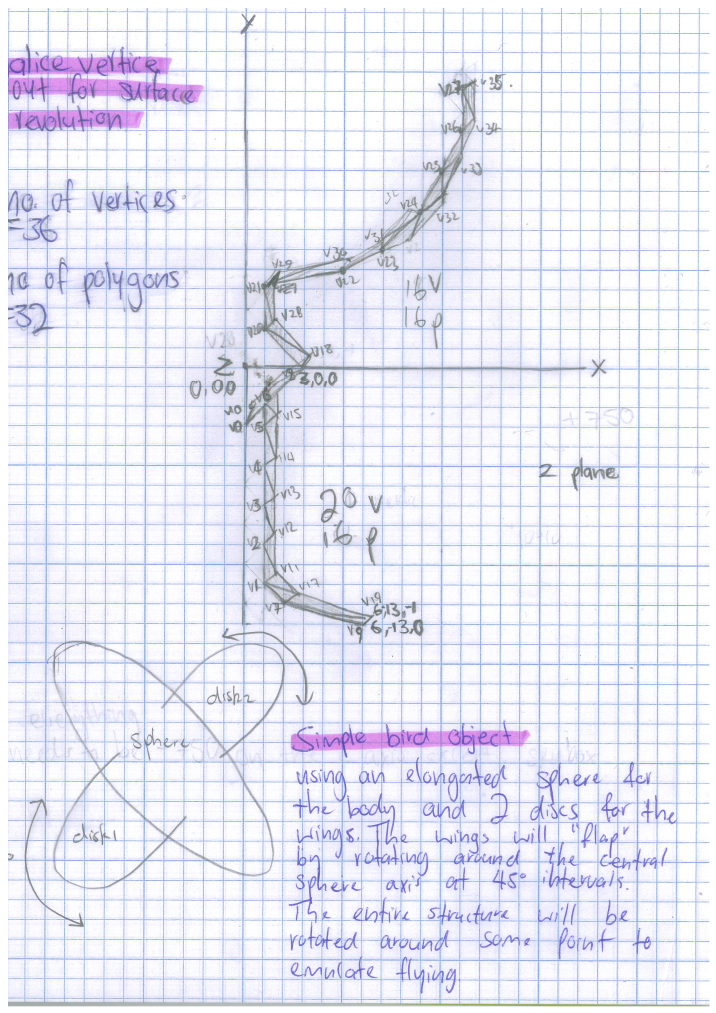 alice vertice
out for surface
revolution
no. of vertices
=36
no of polygons
=32
Y
v27
v35.
v26
v34
v25
v33
v24
v32
v31
v23
v30
v22
v29
v21
v27
v28
v20
16V
16p
v18
Z
X
0,0,0
3,0,0
v6
v10
v8
v5
v15
v4
v14
v3
v13
v2
v12
v1
v11
v17
v7
v19
6,-13,-1
v9 6,-13,0
20 v
16 p
+750
z plane
disk2
Sphere
disk1
Simple bird object
using an elongated sphere for
the body and 2 discs for the
wings. The wings will "flap"
by rotating around the central
sphere axis at 45° intervals.
The entire structure will be
rotated around some point to
emulate flying